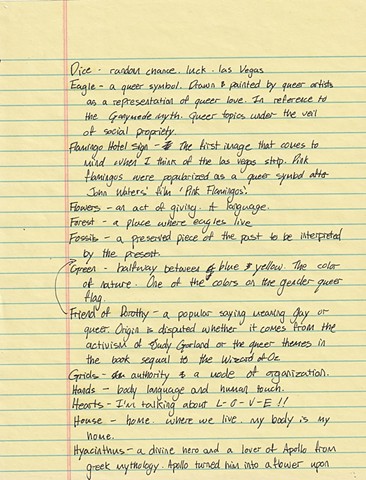 Dice - random chance. luck. las Vegas
Eagle - a queer symbol. Drawn & painted by queer artists
as a representation of queer love. In reference to
the Ganymede myth. Queer topics under the veil
of social propriety.
Flamingo Hotel Sign - The first image that comes to
mind when I think of the las vegas strip. Pink
flamingos were popularized as a queer symbol after
John Waters' film 'Pink Flamingos'.
Flowers - an act of giving. A language.
Forest - a place where eagles live
Fossils - a preserved piece of the past to be interpreted
by the present.
Green - halfway between blue & yellow. The color
of nature. One of the colors on the gender queer
flag.
Friend of Dorothy - a popular saying meaning gay or
queer. Origin is disputed whether it comes from the
activism of Judy Garland or the queer themes in
the book sequal to the Wizard of Oz
Grids - authority & a mode of organization.
Hands - body language and human touch.
Hearts - I'm talking about L-O-V-E !!
House - home. where we live. my body is my
home.
Hyacinthus - a divine hero and a lover of Apollo from
greek mythology. Apollo turned him into a flower upon